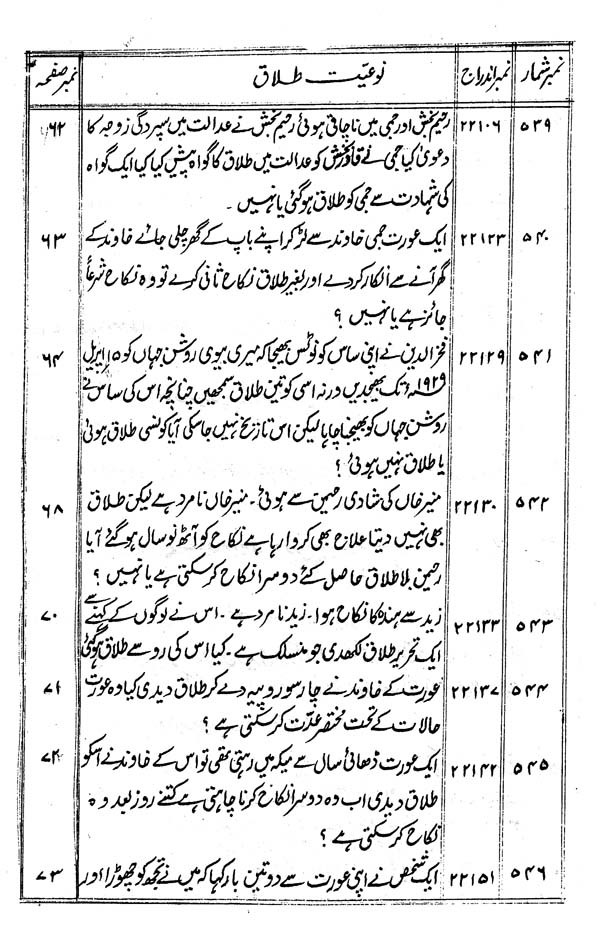 نمبر شمار نمبر اندراج نوعیت طلاق نمبر صفحہ
۵۳۹ ۲۲۱۰۶ رحیم بخش اور جمی میں ناچاقی ہوئی رحیم بخش نے عدالت میں سپردگی زوجہ کا ۶۲
دعویٰ کیا جمی نے قادر بخش کو عدالت میں طلاق کا گواہ پیش کیا کیا ایک گواہ
کی شہادت سے جمی کو طلاق ہوگئی یا نہیں ۔
۵۴۰ ۲۲۱۲۳ ایک عورت جمی خاوند سے لڑ کر اپنے باپ کے گھر چلی جائے خاوند کے ۶۳
گھر آنے سے انکار کر دے اور بغیر طلاق نکاح ثانی کرے تو وہ نکاح شرعاً
جائز ہے یا نہیں ؟
۵۴۱ ۲۲۱۲۹ فخر الدین نے اپنی ساس کو نوٹس بھیجا کہ میری بیوی روشن جہاں کو ۱۵ اپریل ۶۴
۱۹۲۹ء تک بھیجدیں ورنہ اسی کو تین طلاق سمجھیں چنانچہ اس کی ساس نے
روشن جہاں کو بھیجنا چاہا لیکن اس تاریخ نہیں جاسکی آیا کونسی طلاق ہوئی
یا طلاق نہیں ہوئی ؟
۵۴۲ ۲۲۱۳۰ منیر خاں کی شادی رحیمن سے ہوئی ۔ منیر خاں نامرد ہے لیکن طلاق ۶۸
بھی نہیں دیتا علاج بھی کروا رہا ہے نکاح کو آٹھ نو سال ہوگئے آیا
رحیمن بلا طلاق حاصل کئے دوسرا نکاح کرسکتی ہے یا نہیں ؟
۵۴۳ ۲۲۱۳۳ زید سے ہندہ کا نکاح ہوا ۔ زید نامرد ہے ۔ اس نے لوگوں کے کہنے سے ۷۰
ایک تحریر طلاق لکھدی جو منسلک ہے ۔ کیا اس کی رو سے طلاق ہوگئی
۵۴۴ ۲۲۱۳۷ عورت کے خاوند نے چار سو روپیہ دے کر طلاق دیدی کیا وہ عورت ۷۱
حالات کے تحت مختصر عدّت کرسکتی ہے ؟
۵۴۵ ۲۲۱۴۲ ایک عورت ڈھائی سال سے میکہ میں رہتی تھی تو اس کے خاوند نے اسکو ۷۲
طلاق دیدی اب وہ دوسرا نکاح کرنا چاہتی ہے کتنے روز بعد وہ
نکاح کرسکتی ہے ؟
۵۴۶ ۲۲۱۵۱ ایک شخص نے اپنی عورت سے دو تین بار کہا کہ میں نے تجھ کو چھوڑا اور ۷۳